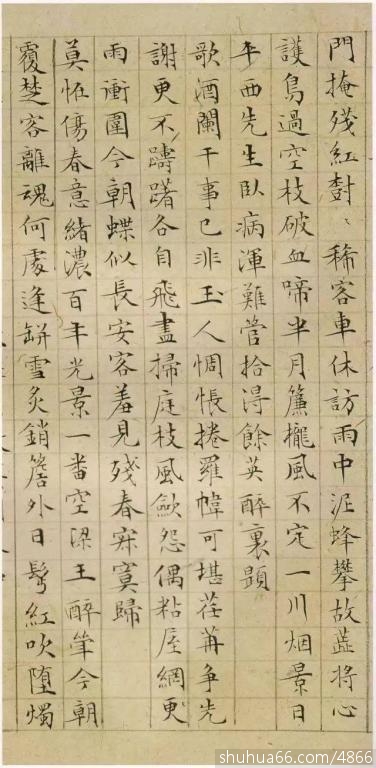 門掩殘紅樹〻稀客車休訪雨中泥蜂攀故蕋將心
護鳥過空枝破血啼半月簾櫳風不定一川烟景日
平西先生臥病渾難管拾得餘英醉裏題
歌酒闌干事已非玉人惆悵捲羅幃可堪荏苒爭先
謝更不躊躇各自飛盡掃庭枝風歛怨偶粘屋網更
雨衝圍今朝蝶似長安客羞見殘春寂寞歸
莫恠傷春意緒濃百年光景一番空梁王醉筆今朝
覆楚客離魂何處逢缾雪炙銷簷外日髩紅吹墮燭
shuhua66.com/4866